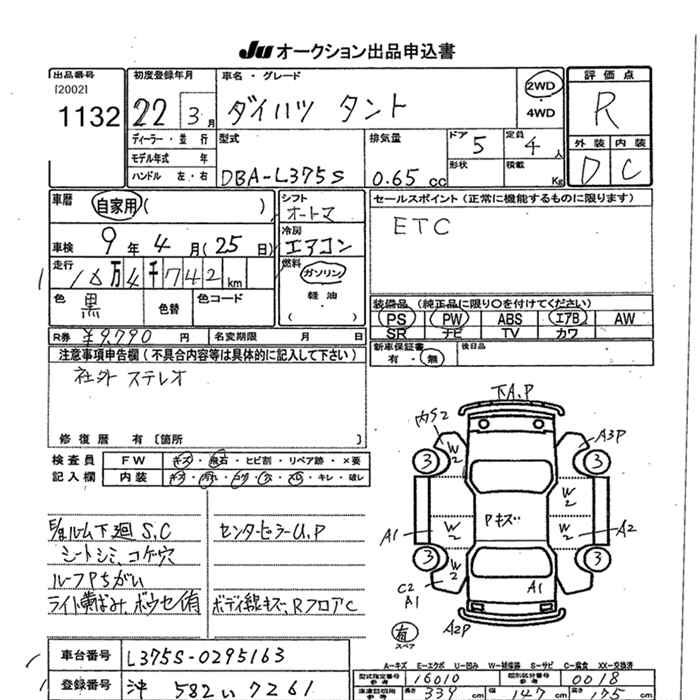 JU オークション出品申込書
出品番号 初度登録年月 車名・グレード 評価点
[2002]
1132 22 3月 ダイハツ タント 2WD ・ 4WD R
ディーラー・並行 型式 排気量 ドア 5 定員 4人 外装 内装
モデル年式 年 形状 積載 Kg
ハンドル 左・右 DBA-L375S 0.65 cc D C
車暦 自家用( ) シフト オートマ セールスポイント(正常に機能するものに限ります)
車検 9年 4月(25日) 冷房 エアコン ETC
走行 10万4千742km 燃料 ガソリン・軽油・( )
色 黒 色替 色コード 装備品(純正品に限り○を付けてください)
PS PW ABS エアB AW
SR ナビ TV カワ
R券 ¥9,790 円 名変期限 月 日 新車保証書 有・無 後日品
注意事項申告欄(不具合内容等は具体的に記入して下さい)
社外 ステレオ
修復歴 有〔箇所 〕
検査員 FW キズ・飛石・ヒビ割・リペア跡・×要
記入欄 内装 キズ・汚れ・コゲ・穴・スレ・キレ・破レ
下A.P
内S2 A3P
3 W2 W2 3
A1 W2 Pキズ W2 A2
3 W2 3
C2 A1 A1
有 スペア A2P
ルーム下廻S,C センターピラーU,P
シートシミ,コゲ穴
ルーフPちがい
ライト黄ばみ,ボウセイ有 ボディ線キズ,RフロアC
A-キズ E-エクボ U-凹み W-補修跡 S-サビ C-腐食 XX-交換済
車台番号 L375S-0295163
型式指定番号 参考 16010 類別区分番号 参考 0018
登録番号 沖 582 い 7261
339 cm 147 cm 175 cm